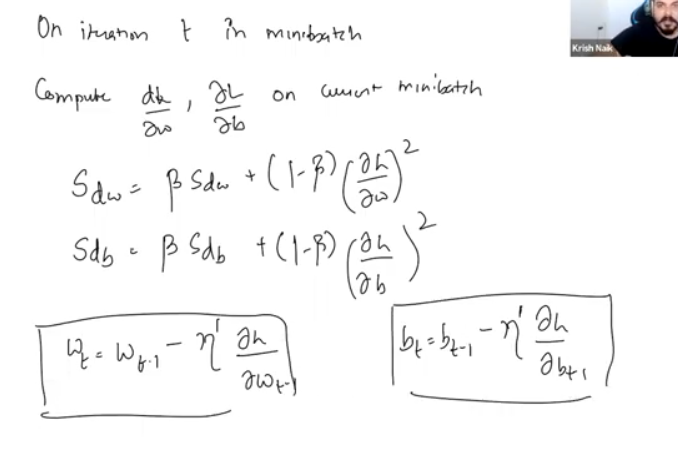 On iteration t in minibatch
Krish Naik
Compute ∂L/∂w , ∂L/∂b on current minibatch
Sdw = β Sdw + (1-β) (∂L/∂w)²
Sdb = β Sdb + (1-β) (∂L/∂b)²
wt = wt-1 - η' ∂L/∂wt-1
bt = bt-1 - η' ∂L/∂bt-1